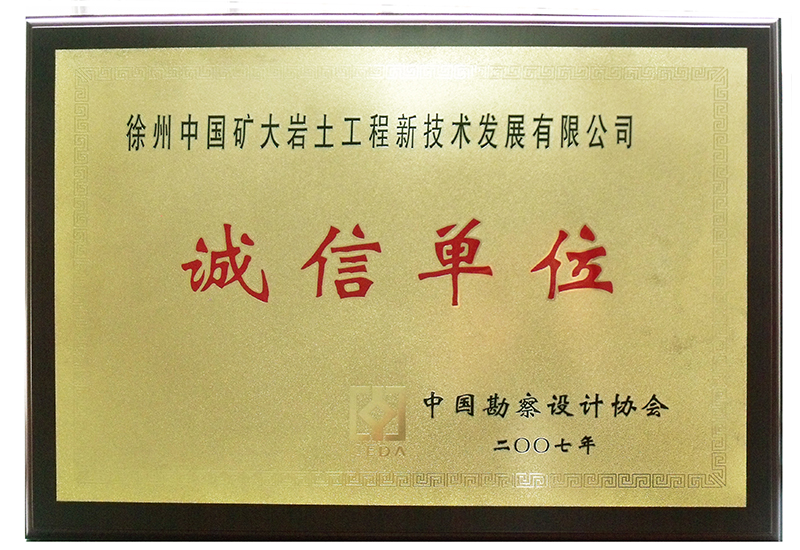 徐州中国矿大岩土工程新技术发展有限公司
诚信单位
中国勘察设计协会
二〇〇七年